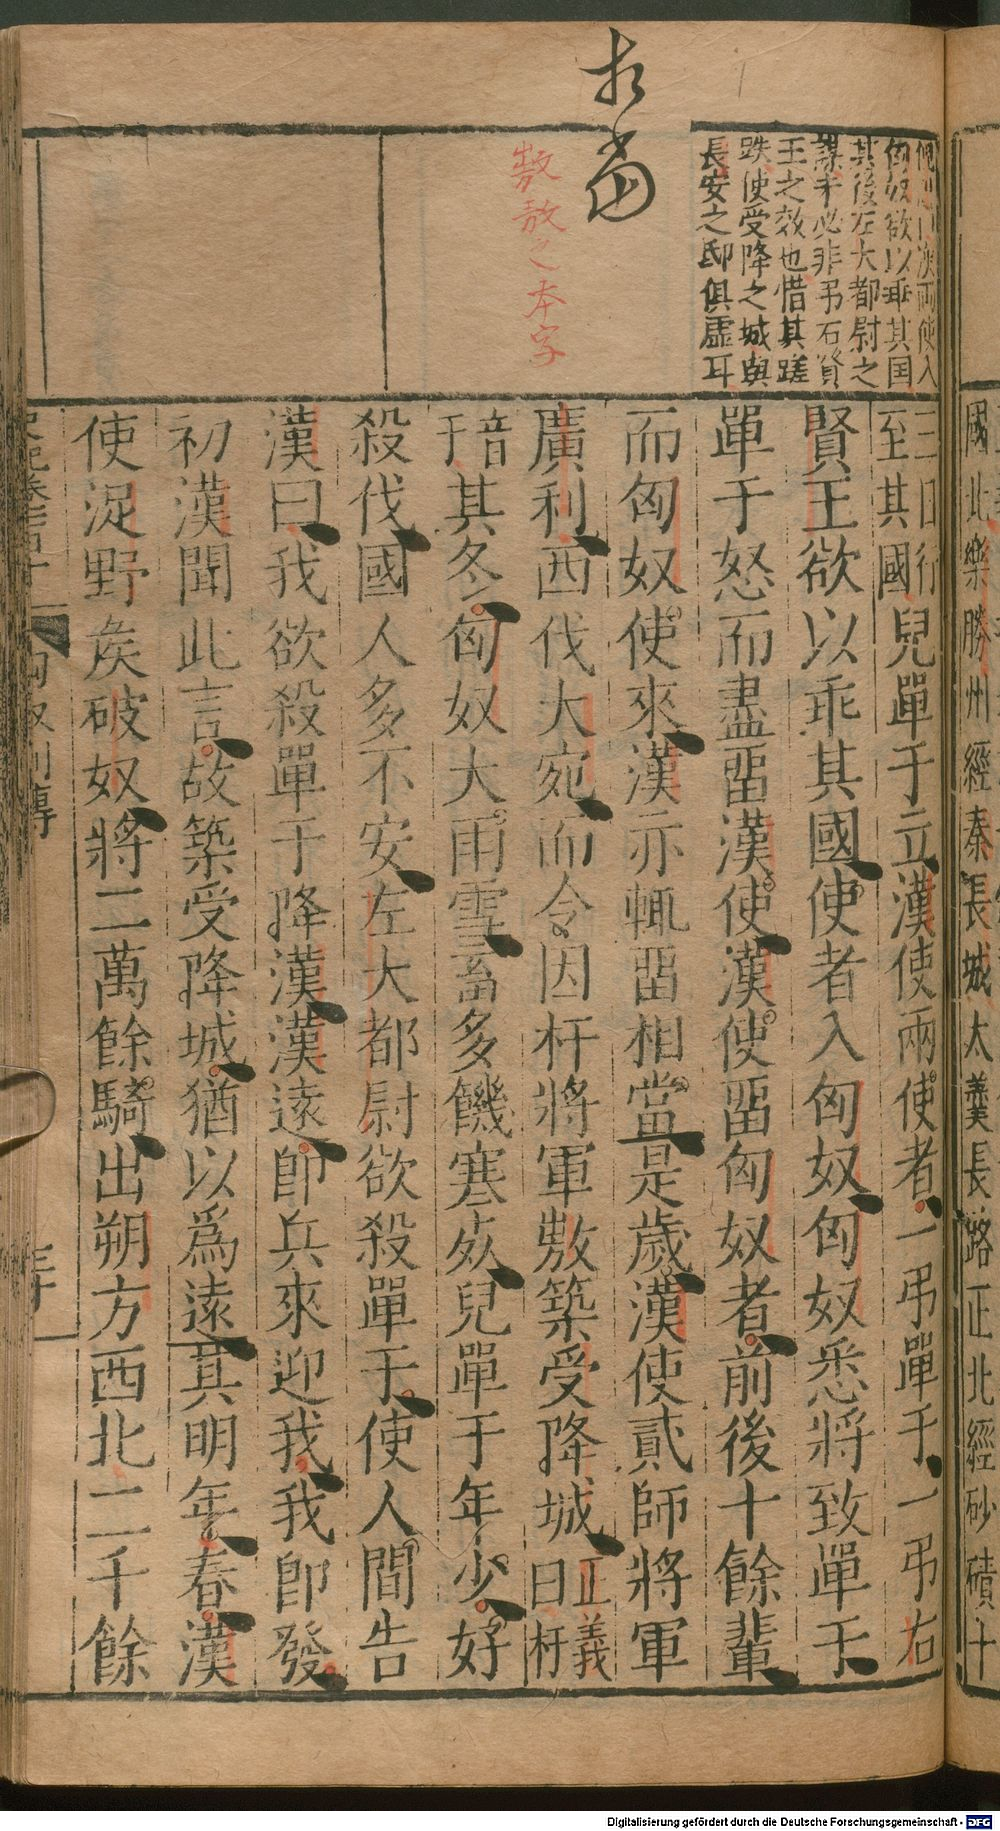 相當
漢使兩使入
匈奴欲以乖其国
其後左大都尉之
謀未必非弔右賢
王之效也惜其蹉
跌使受降之城與
長安之邸俱虛耳
敷敖之本字
三日行
至其國
兒單于立漢使兩使者一弔單于一弔右
賢王欲以乖其國使者入匈奴匈奴悉將致單于
單于怒而盡畱漢使漢使畱匈奴者前後十餘輩
而匈奴使來漢亦輒畱相當是歲漢使貳師將軍
廣利西伐大宛而令因杅將軍敖築受降城
正義
曰杅
音
于
其冬匈奴大雨雪畜多饑寒死兒單于年少好
殺伐國人多不安左大都尉欲殺單于使人間告
漢曰我欲殺單于降漢漢遠卽兵來迎我我卽發
初漢聞此言故築受降城猶以爲遠其明年春漢
使浞野矦破奴將二萬餘騎出朔方西北二千餘
史記卷一百十 匈奴列傳 三十
國北樂勝州經秦長城太羹長路正北經砂磧十
Digitalisierung gefördert durch die Deutsche Forschungsgemeinschaft - DFG